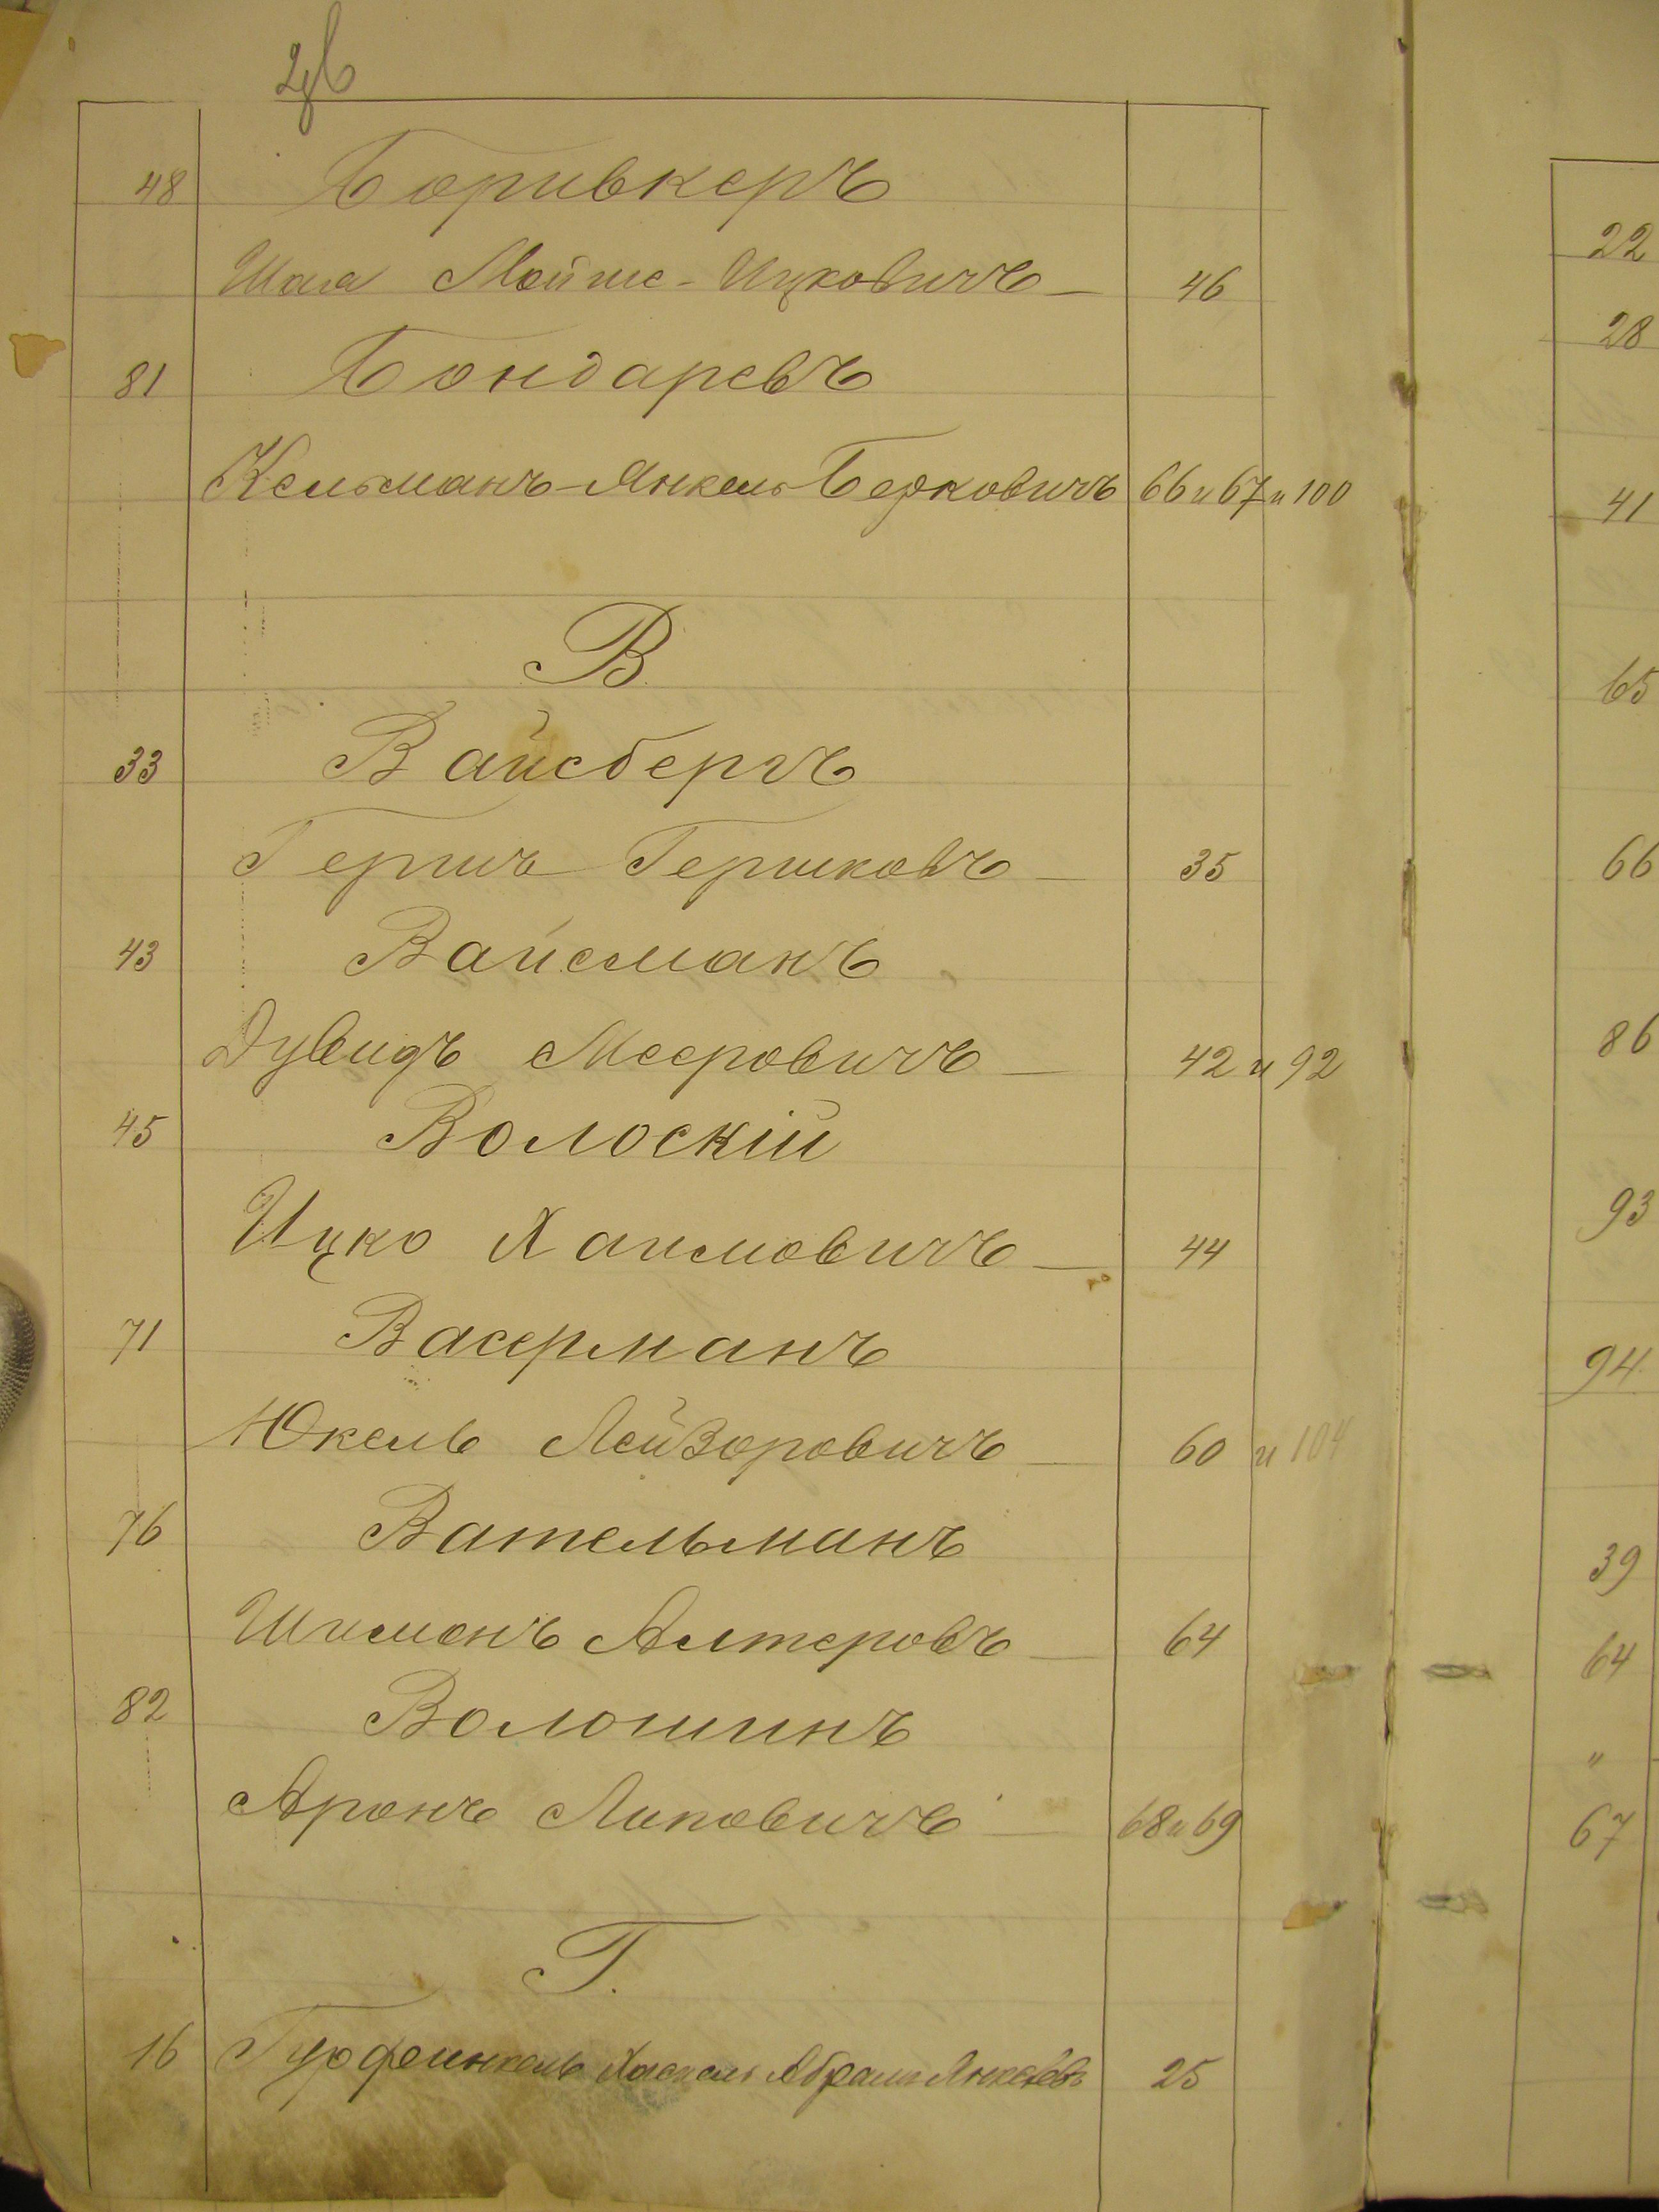 48 Боривкеръ
Шая Мойше-Ицковичъ — 46
81 Бондаревъ
Кельманъ-Янкель Берковичъ 66 и 67 и 100
В.
33 Вайсбергъ
Гершъ Гершковъ — 35
43 Вайсманъ
Дувидъ Мееровичъ — 42 и 92
45 Волоскій
Ицко Хаимовичъ — 44
71 Васерманъ
Юкель Лейзоровичъ — 60 и 104
76 Вательманъ
Шимонъ Алтеровъ — 64
82 Волошинъ
Аронъ Липовичъ — 68 и 69
Г.
16 Гурфинкель Хаскель Абрамъ Янкелевъ 25
22
28
41
65
66
86
93
94
39
64
"
67